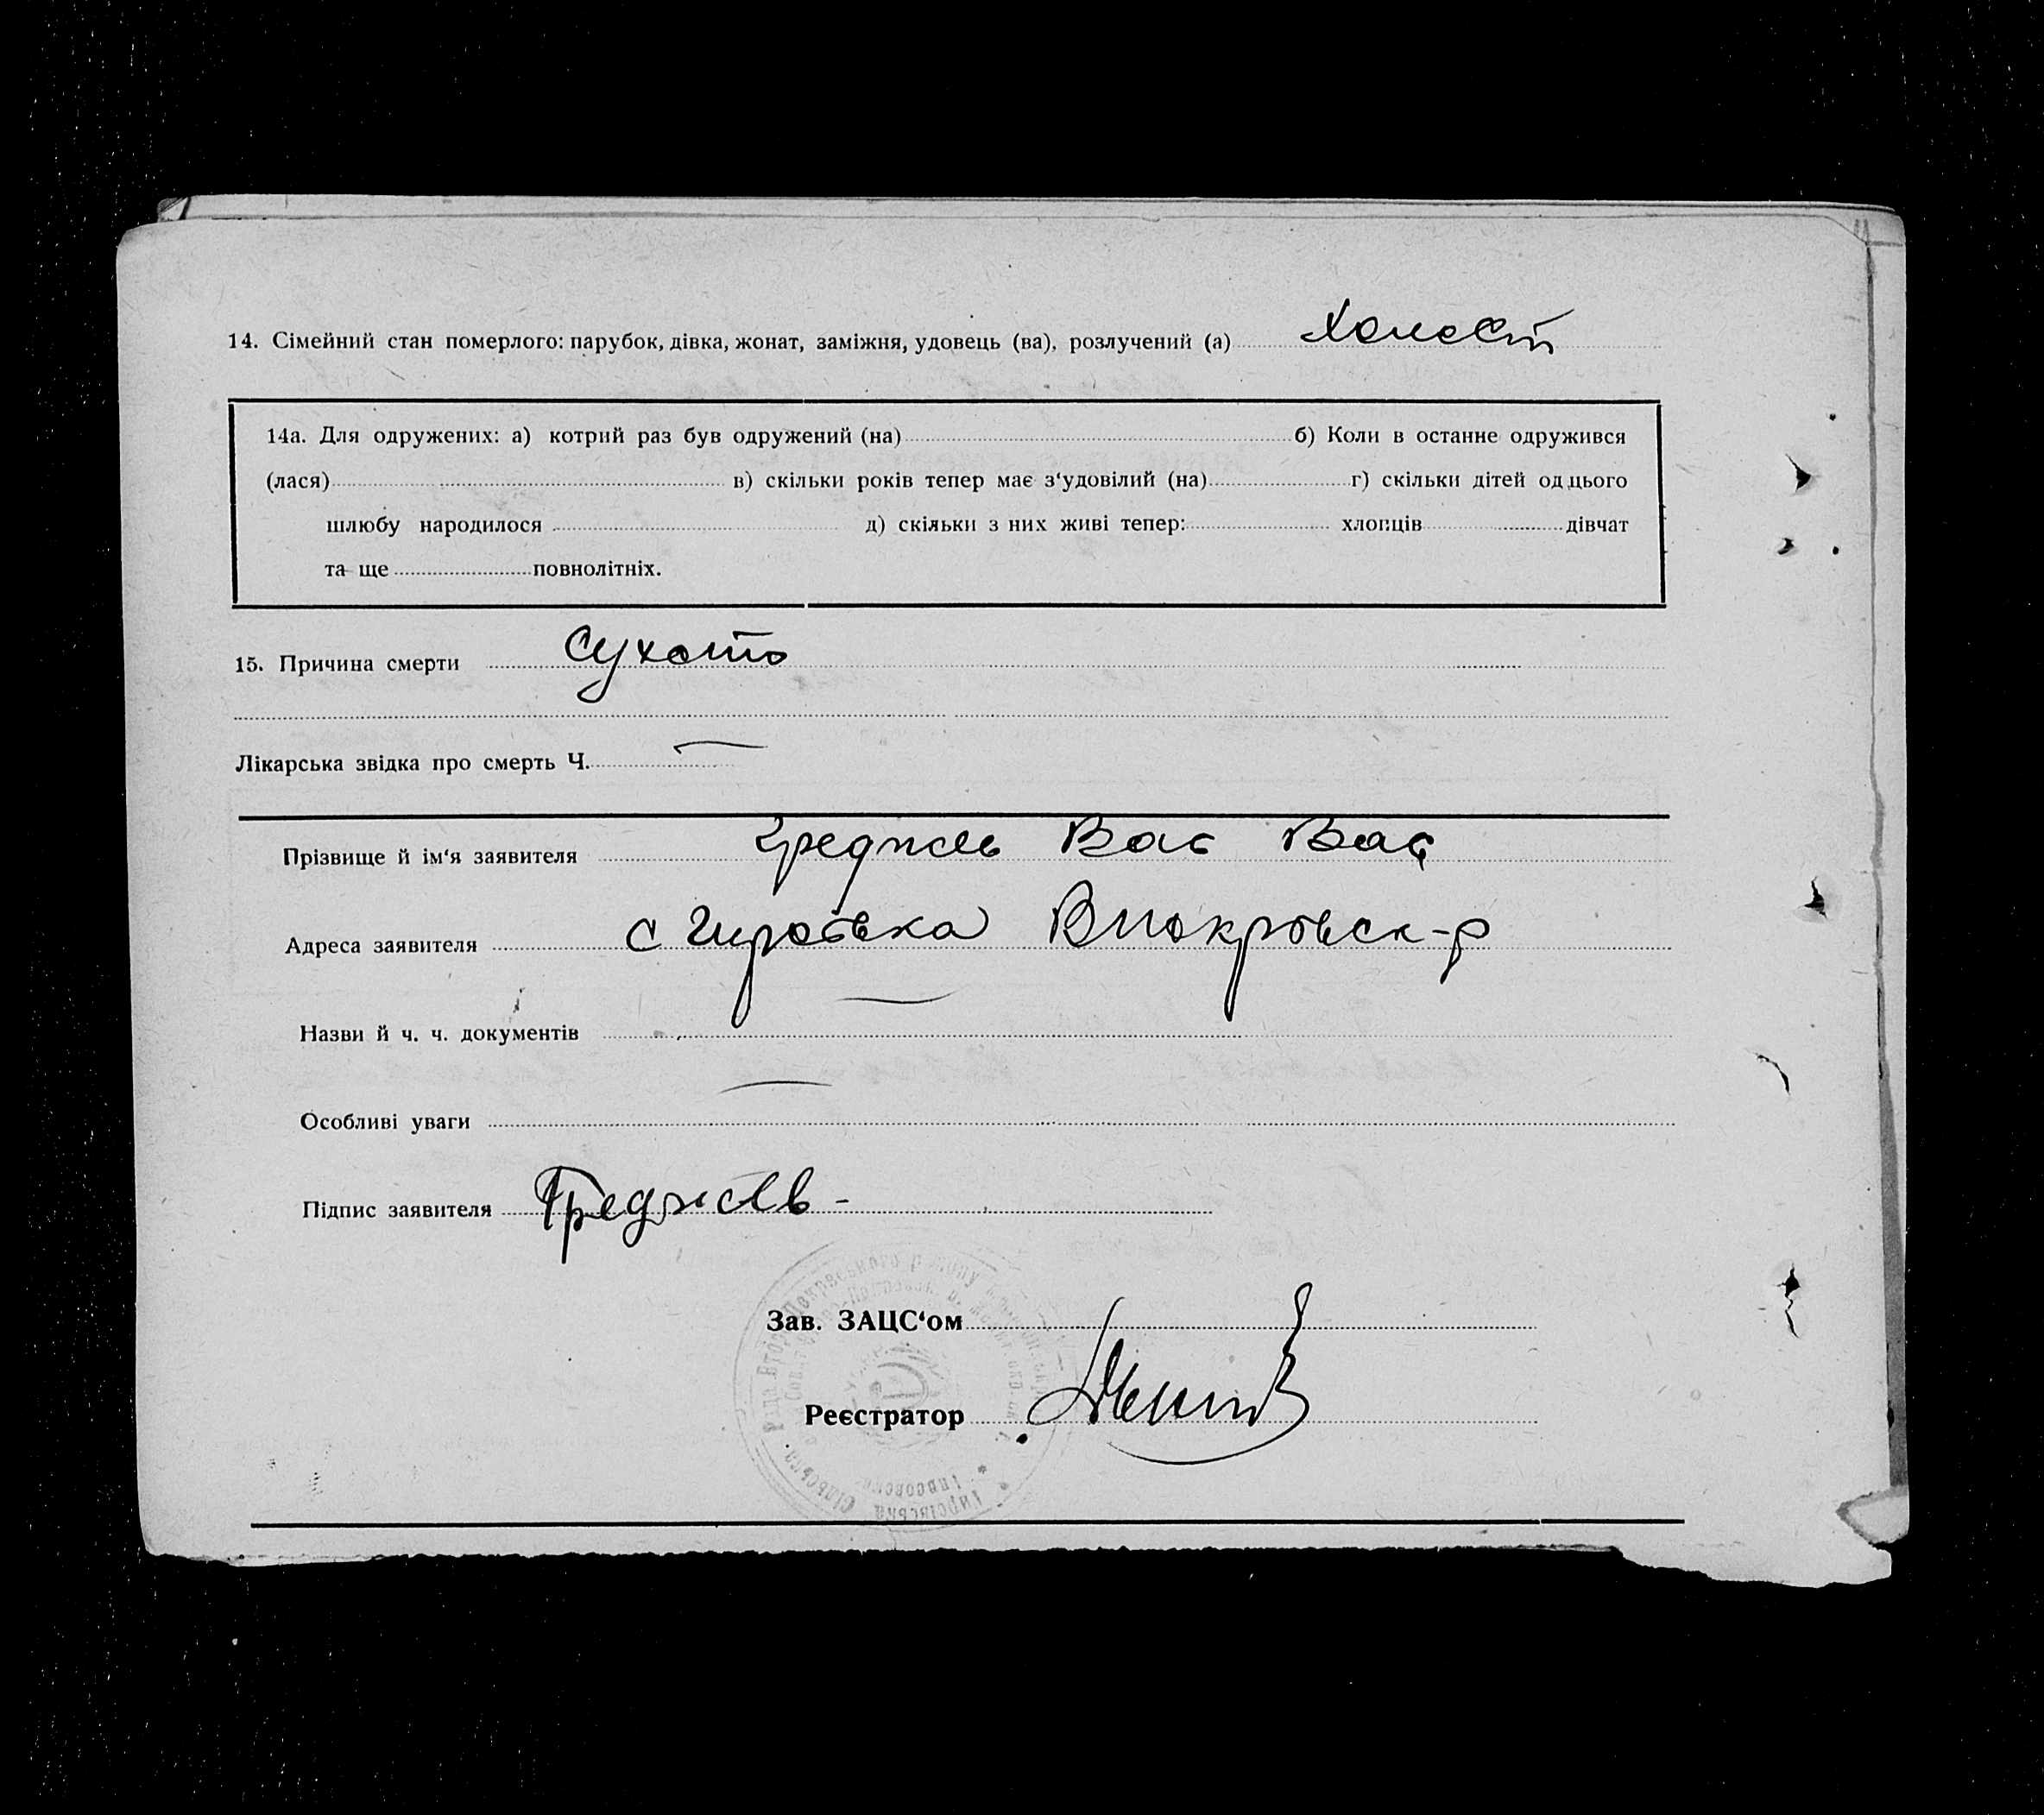 14. Сімейний стан померлого: парубок, дівка, жонат, заміжня, удовець (ва), розлучений (а) холост
14а. Для одружених: а) котрий раз був одружений (на) б) Коли в останне одружився
(лася) в) скільки років тепер має з‘удовілий (на) г) скільки дітей од цього
шлюбу народилося д) скільки з них живі тепер: хлопців дівчат
та ще повнолітніх.
15. Причина смерти Сухота
Лікарська звідка про смерть Ч. —
Прізвище й ім‘я заявителя Вас Вас
Адреса заявителя с Гировка Впокровск-р
Назви й ч. ч. документів —
Особливі уваги —
Підпис заявителя
Зав. ЗАЦС‘ом
Реєстратор